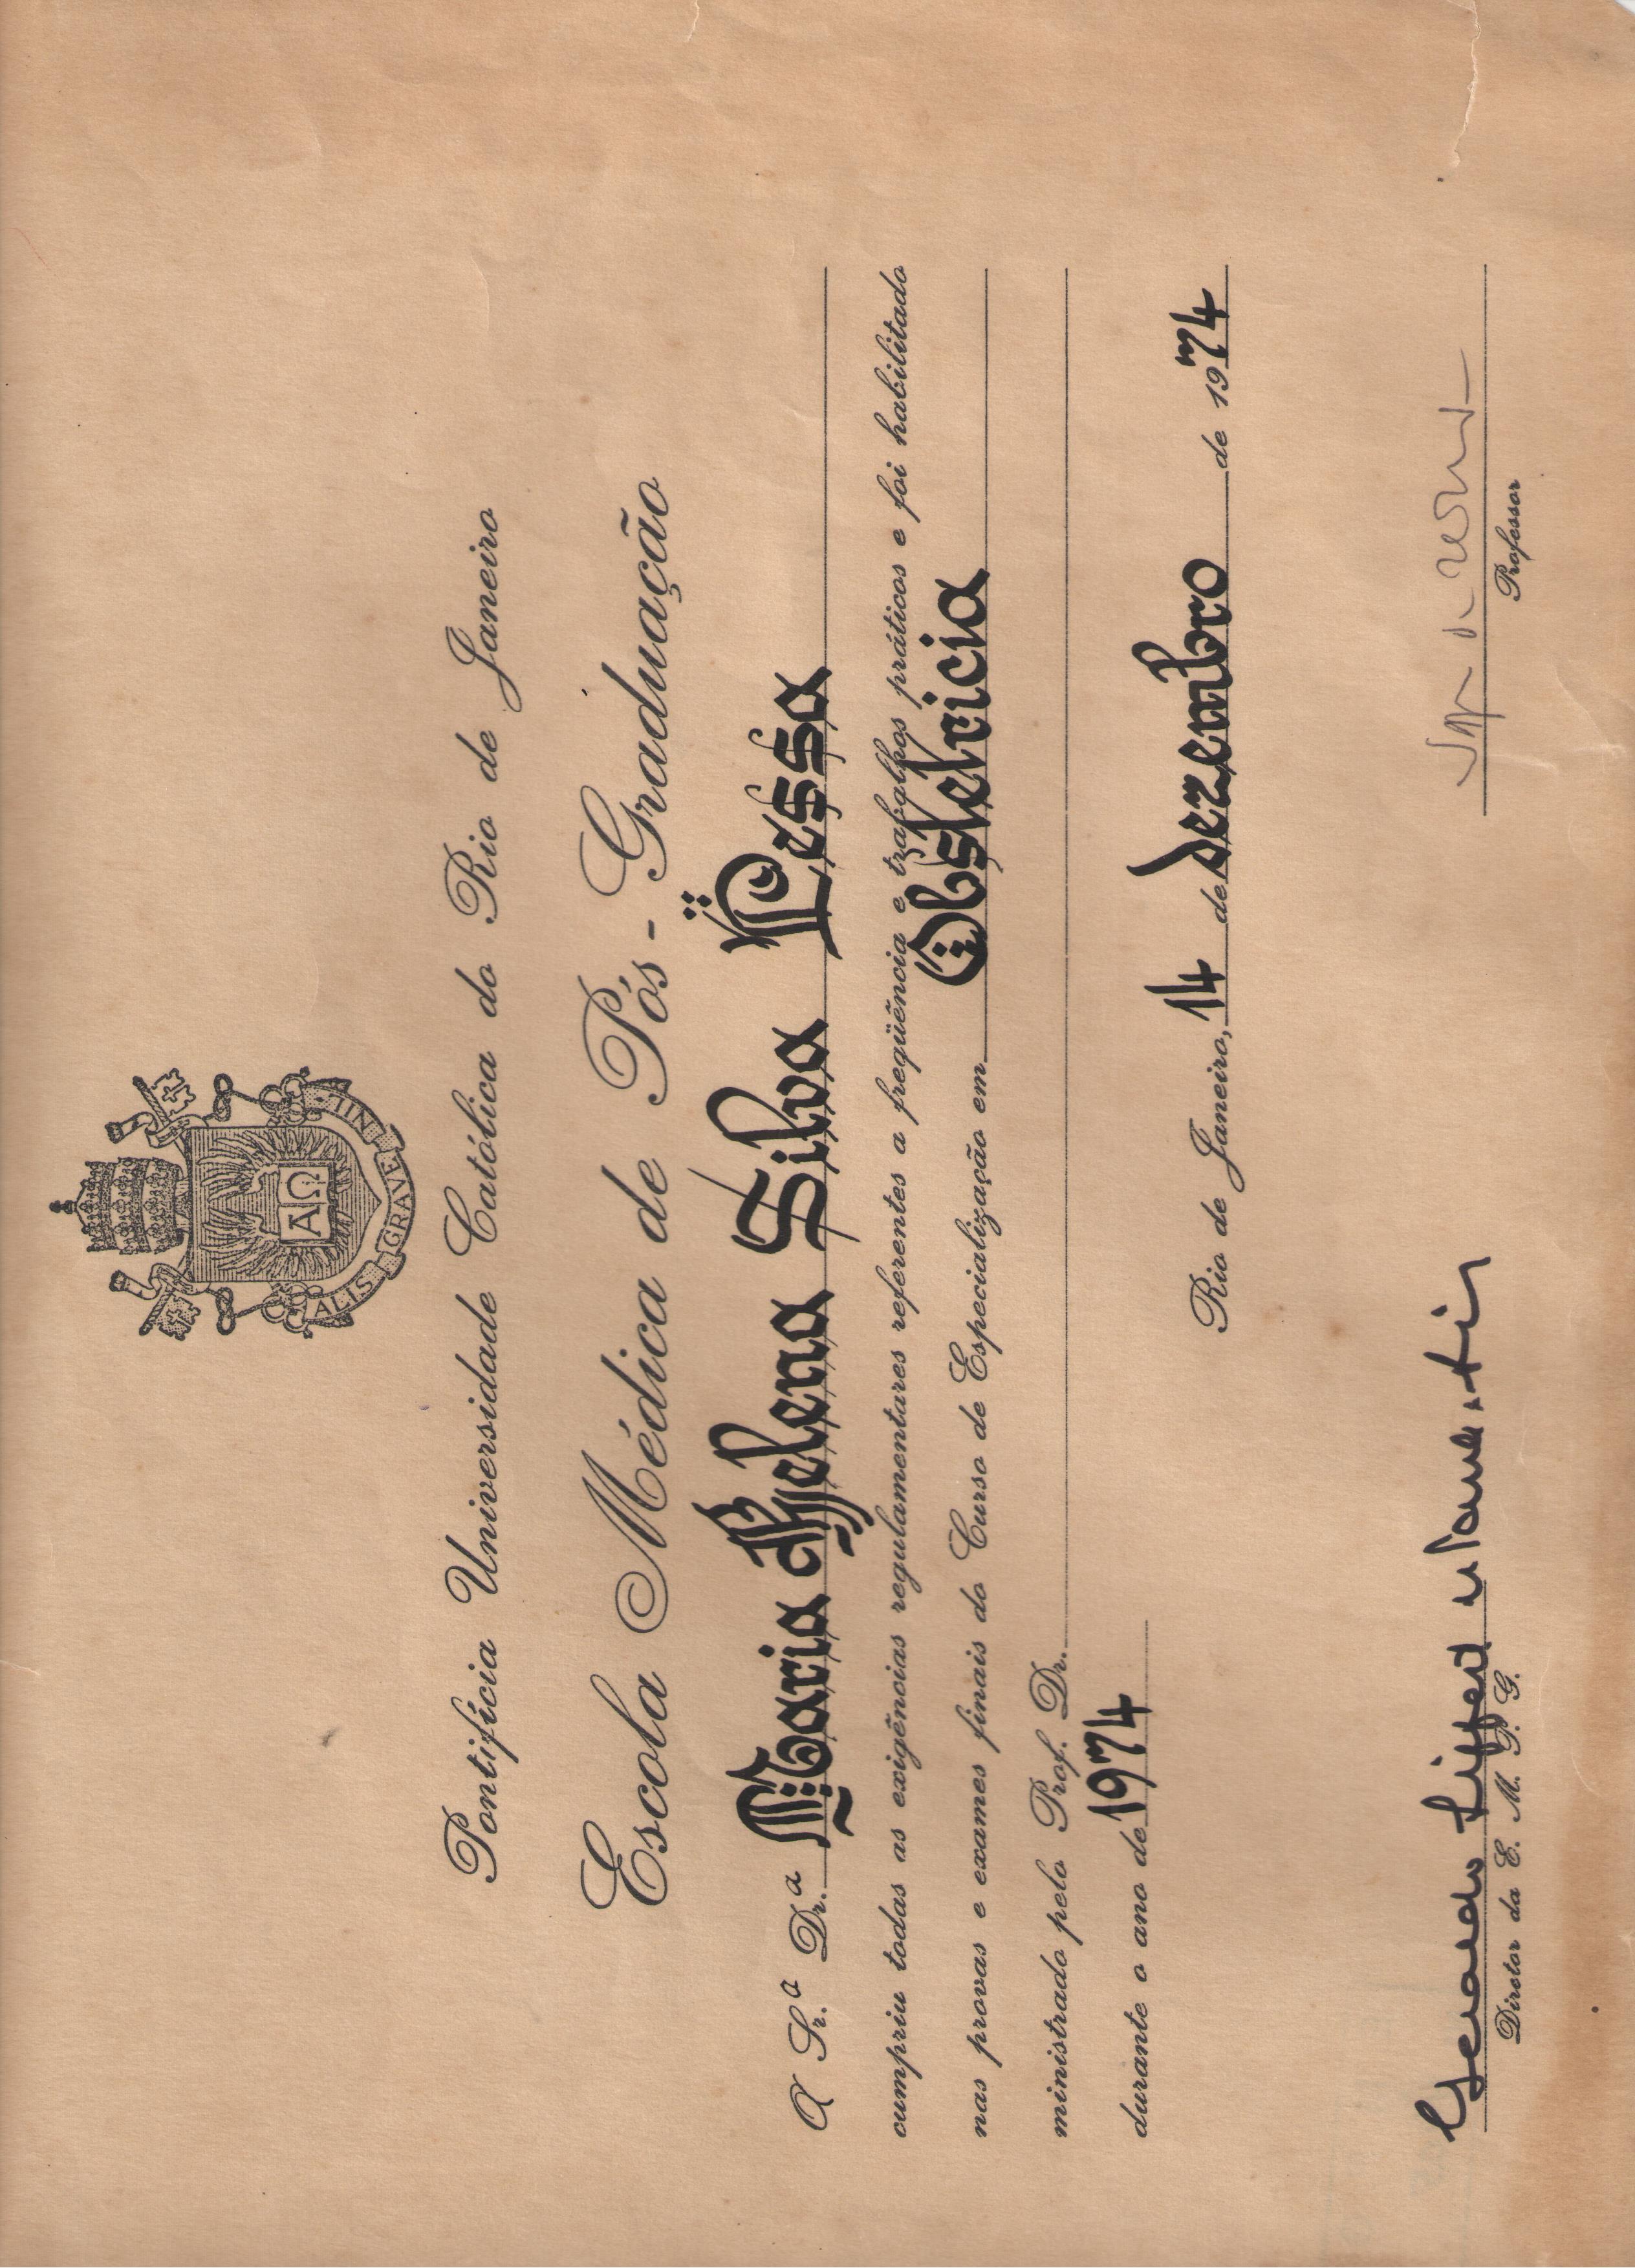 ALIS GRAVE NIL
ΑΩ
Pontifícia Universidade Católica do Rio de Janeiro
Escola Médica de Pós-Graduação
A Sr.a Dr.a Maria Helena Silva Pessa
cumpriu todas as exigências regulamentares referentes a freqüência e trabalhos práticos e foi habilitado
nas provas e exames finais do Curso de Especialização em Obstetricia
ministrado pelo Prof. Dr.
durante o ano de 1974
Rio de Janeiro, 14 de dezembro de 1974
Diretor da E. M. P. G.
Professor